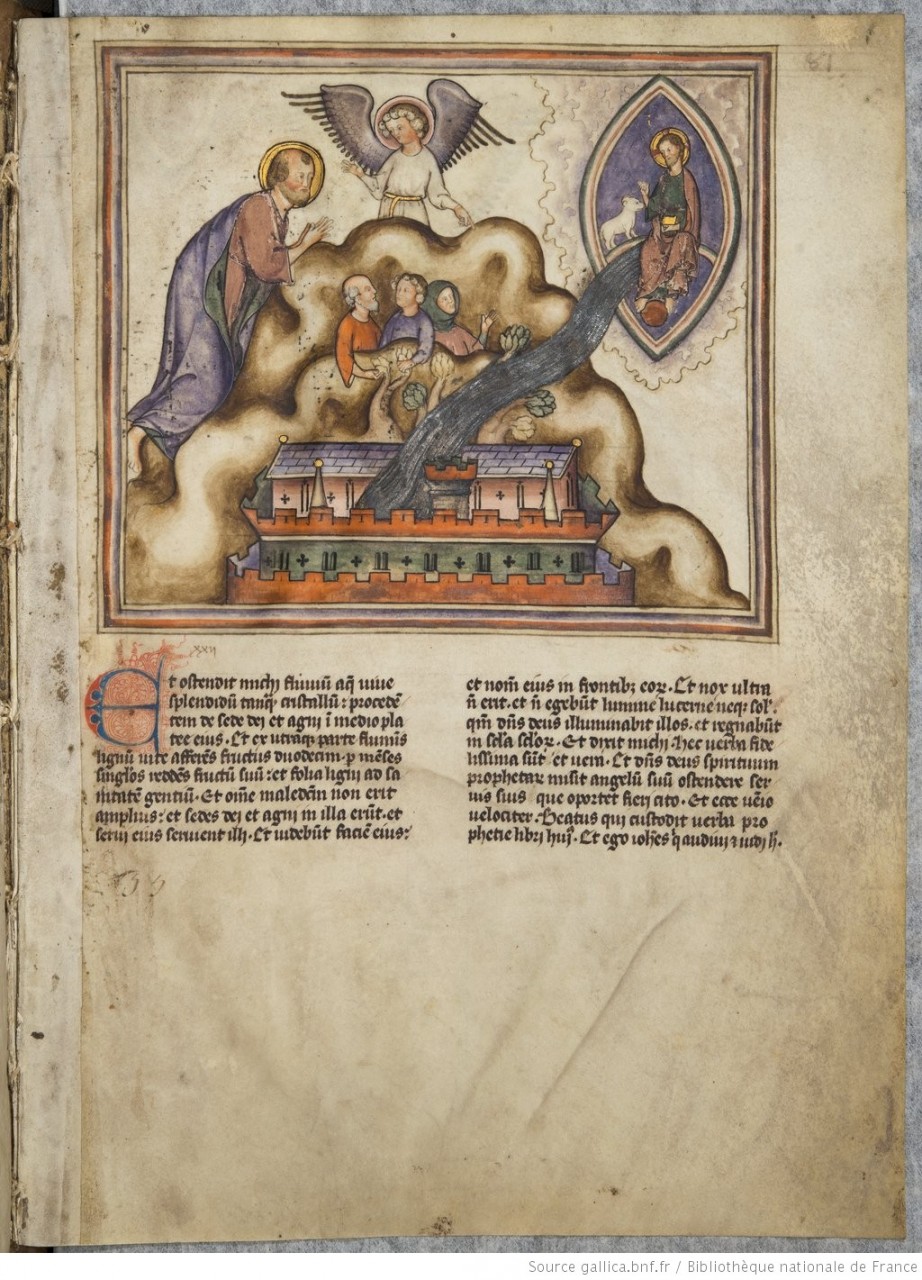 81
xxii
Et ostendit michi fluuiū aq̄ uiue
splendidū tanq̄ cristallū: proceden̄
tem de sede dei et agni ī medio pla
tee eius. Et ex utraq; parte fluminis
lignū uite afferēs fructus duodecim. p̄ mēses
singlōs reddēs fructū suū: et folia ligni ad sa
nitatē gentiū. Et om̄e maledcm̄ non erit
amplius: et sedes dei et agni in illa erūt. et
serui eius seruient illi. Et uidebūt faciē eius:
et nom̄ eius in frontibȝ eoꝝ. Et nox ultra
n̄ erit. et n̄ egebūt lumine lucerne neq; sol'.
qm̄ dn̄s deus illuminabit illos. et regnabūt
in scl̄a scl̄oꝝ. Et dixit michi. Hec uerba fide
lissima sūt et uera. Et dn̄s deus spirituum
prophetaꝝ misit angelū suū ostendere ser
uis suis que oportet fieri cito. Et ecce uēio
uelociter. Beatus qui custodit uerba pro
phetie libri huiꝰ. Et ego ioh̄es q̄ audiui ⁊ uidi h̄.
Source gallica.bnf.fr / Bibliothèque nationale de France